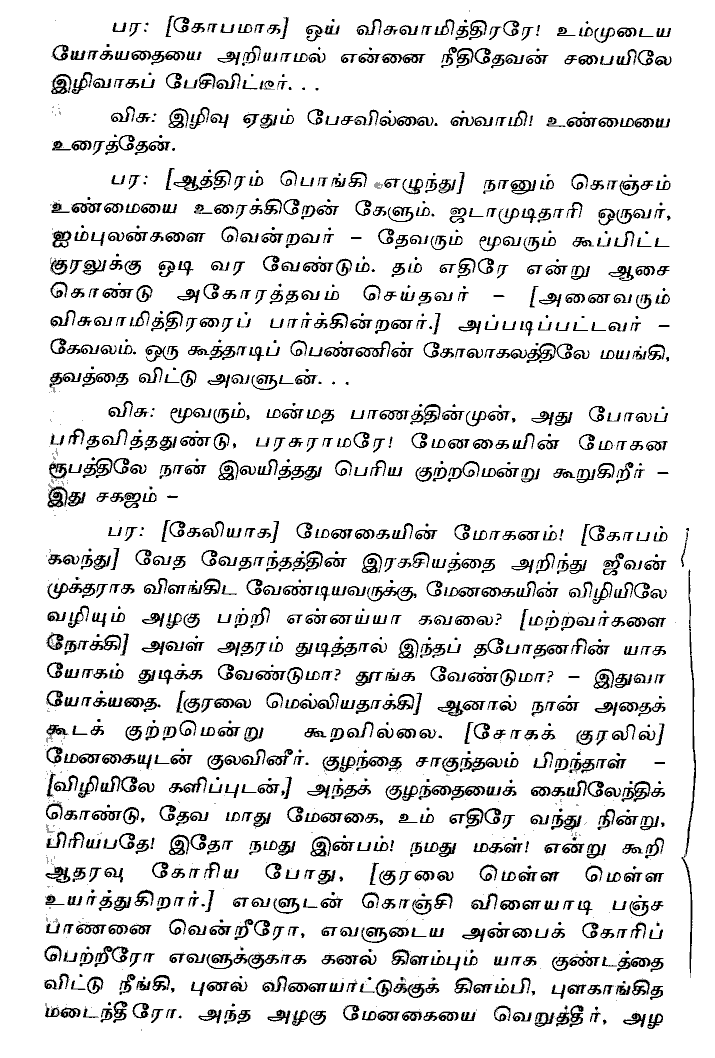 பர: [கோபமாக] ஒய் விசுவாமித்திரரே! உம்முடைய
யோக்யதையை அறியாமல் என்னை நீதிதேவன் சபையிலே
இழிவாகப் பேசிவிட்டீர். . .
விசு: இழிவு ஏதும் பேசவில்லை. ஸ்வாமி! உண்மையை
உரைத்தேன்.
பர: [ஆத்திரம் பொங்கி எழுந்து] நானும் கொஞ்சம்
உண்மையை உரைக்கிறேன் கேளும். ஜடாமுடிதாரி ஒருவர்,
ஐம்புலன்களை வென்றவர் – தேவரும் மூவரும் கூப்பிட்ட
குரலுக்கு ஒடி வர வேண்டும். தம் எதிரே என்று ஆசை
கொண்டு அகோரத்தவம் செய்தவர் – [அனைவரும்
விசுவாமித்திரரைப் பார்க்கின்றனர்.] அப்படிப்பட்டவர் –
கேவலம். ஒரு கூத்தாடிப் பெண்ணின் கோலாகலத்திலே மயங்கி,
தவத்தை விட்டு அவளுடன். . .
விசு: மூவரும், மன்மத பாணத்தின்முன், அது போலப்
பரிதவித்ததுண்டு, பரசுராமரே! மேனகையின் மோகன
ரூபத்திலே நான் இலயித்தது பெரிய குற்றமென்று கூறுகிறீர் –
இது சகஜம் –
பர: [கேலியாக] மேனகையின் மோகனம்! [கோபம்
கலந்து] வேத வேதாந்தத்தின் இரகசியத்தை அறிந்து ஜீவன்
முக்தராக விளங்கிட வேண்டியவருக்கு, மேனகையின் விழியிலே
வழியும் அழகு பற்றி என்னய்யா கவலை? [மற்றவர்களை
நோக்கி] அவள் அதரம் துடித்தால் இந்தப் தபோதனரின் யாக
யோகம் துடிக்க வேண்டுமா? தூங்க வேண்டுமா? – இதுவா
யோக்யதை. [குரலை மெல்லியதாக்கி] ஆனால் நான் அதைக்
கூடக் குற்றமென்று கூறவில்லை. [சோகக் குரலில்]
மேனகையுடன் குலவினீர். குழந்தை சாகுந்தலம் பிறந்தாள் –
[விழியிலே களிப்புடன்,] அந்தக் குழந்தையைக் கையிலேந்திக்
கொண்டு, தேவ மாது மேனகை, உம் எதிரே வந்து நின்று,
பிரியபதே! இதோ நமது இன்பம்! நமது மகள்! என்று கூறி
ஆதரவு கோரிய போது, [குரலை மெள்ள மெள்ள
உயர்த்துகிறார்.] எவளுடன் கொஞ்சி விளையாடி பஞ்ச
பாணனை வென்றீரோ, எவளுடைய அன்பைக் கோரிப்
பெற்றீரோ எவளுக்குகாக கனல் கிளம்பும் யாக குண்டத்தை
விட்டு நீங்கி, புனல் விளையர்ட்டுக்குக் கிளம்பி, புளகாங்கித
மடைந்தீரோ. அந்த அழகு மேனகையை வெறுத்தீர், அழ